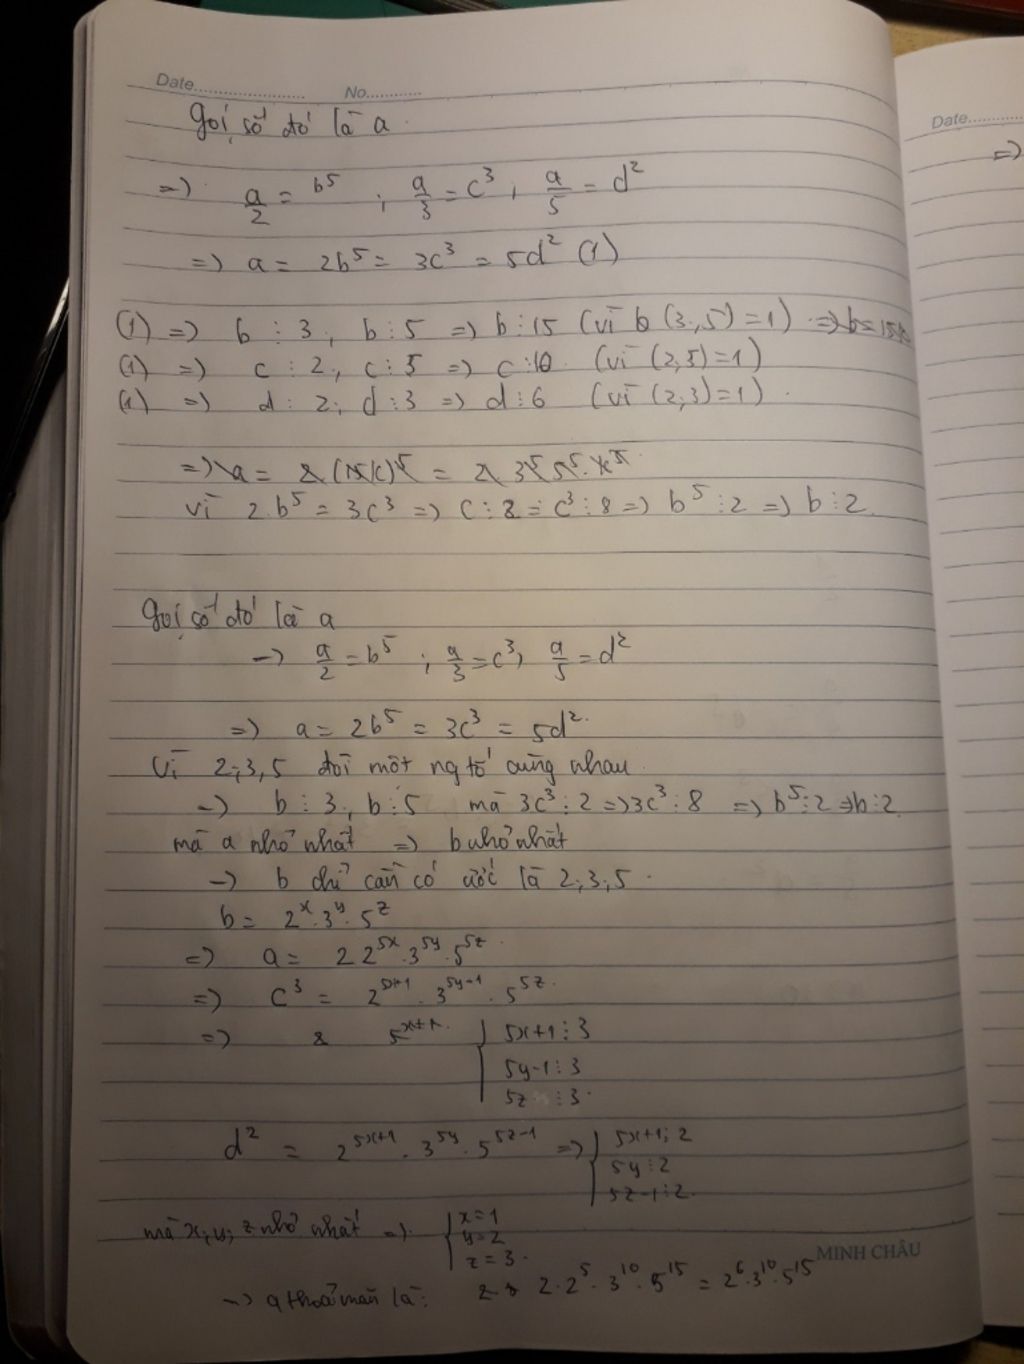 Date.................... No............
gọi số đó là a
=> a/2 = b^5 ; a/3 = c^3 ; a/5 = d^2
=> a = 2b^5 = 3c^3 = 5d^2 (1)
(1) => b ⋮ 3, b ⋮ 5 => b ⋮ 15 (vì (3,5)=1) => b = 15k
(1) => c ⋮ 2, c ⋮ 5 => c ⋮ 10 (vì (2,5)=1)
(1) => d ⋮ 2; d ⋮ 3 => d ⋮ 6 (vì (2;3)=1)
=> a = 2(15k)^5 = 2 3^5 5^5 . k^5
vì 2.b^5 = 3c^3 => c ⋮ 2 = c^3 ⋮ 8 => b^5 ⋮ 2 => b ⋮ 2
gọi số đó là a
-> a/2 = b^5 ; a/3 = c^3, a/5 = d^2
=> a = 2b^5 = 3c^3 = 5d^2
Vì 2;3,5 đôi một ng tố cùng nhau
-> b ⋮ 3, b ⋮ 5 mà 3c^3 ⋮ 2 => 3c^3 ⋮ 8 => b^5 ⋮ 2 => b ⋮ 2
mà a nhỏ nhất => b nhỏ nhất
-> b chỉ cần có ước là 2;3;5
b = 2^x . 3^y . 5^z
=> a = 2 2^5x . 3^5y . 5^5z
=> c^3 = 2^5x+1 . 3^5y-1 . 5^5z
=> 5^x+1 { 5x+1 ⋮ 3
5y-1 ⋮ 3
5z ⋮ 3
d^2 = 2^5x+1 . 3^5y . 5^5z-1 => { 5x+1 ⋮ 2
5y ⋮ 2
5z-1 ⋮ 2
mà x, y, z nhỏ nhất => { x=1
y=2
z=3
MINH CHÂU
-> a thoả mãn là: 2.2^5 . 3^10 . 5^15 = 2^6 . 3^10 . 5^15
Date............
=>